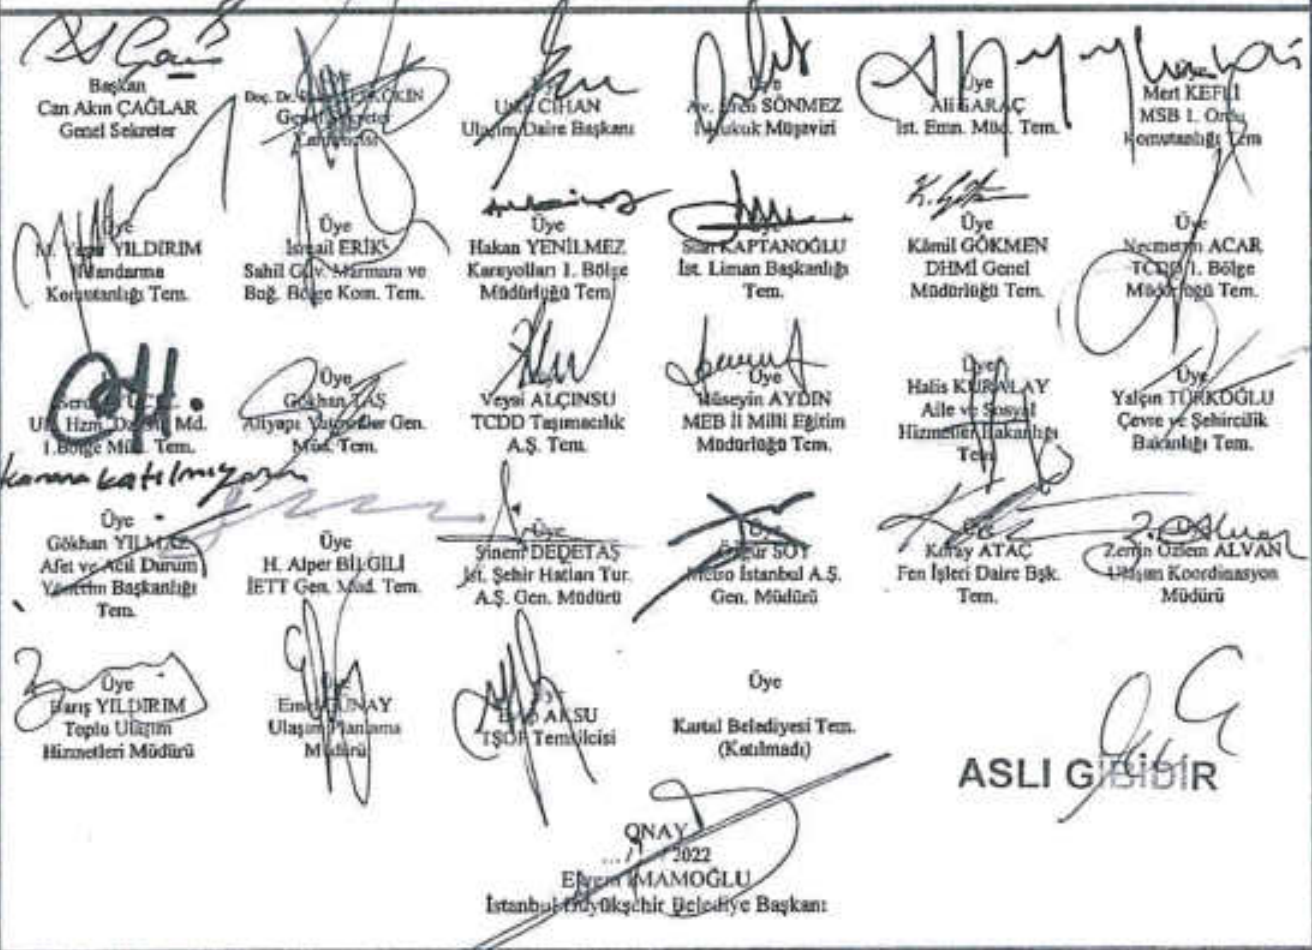 Başkan
Can Akın ÇAĞLAR
Genel Sekreter
Doç. Dr.
Genel Sekreter
Üye
CİHAN
Ulaşım Daire Başkanı
Üye
Av. Eren SÖNMEZ
Hukuk Müşaviri
Üye
Ali SARAÇ
İst. Emn. Müd. Tem.
Mert KEFLİ
MSB 1. Ordu
Komutanlığı Tem
Üye
M. YILDIRIM
Jandarma
Komutanlığı Tem.
Üye
İsmail ERİK
Sahil Güv. Marmara ve
Boğ. Bölge Kom. Tem.
Üye
Hakan YENİLMEZ
Karayolları 1. Bölge
Müdürlüğü Tem
Üye
KAPTANOĞLU
İst. Liman Başkanlığı
Tem.
K. Gökmen
Üye
Kâmil GÖKMEN
DHMİ Genel
Müdürlüğü Tem.
Üye
Necmettin ACAR
TCDD 1. Bölge
Müdürlüğü Tem.
Ul. Hzm. Md.
1.Bölge Müd. Tem.
karara katılmıyorum
Üye
Gökhan TAŞ
Altyapı Yatırımlar Gen.
Müd. Tem.
Veysi ALÇINSU
TCDD Taşımacılık
A.Ş. Tem.
Üye
Hüseyin AYDIN
MEB İl Milli Eğitim
Müdürlüğü Tem.
Üye
Halis KURALAY
Aile ve Sosyal
Hizmetler Bakanlığı
Tem.
Üye
Yalçın TÜRKOĞLU
Çevre ve Şehircilik
Bakanlığı Tem.
Üye
Gökhan YILMAZ
Afet ve Acil Durum
Yönetim Başkanlığı
Tem.
Üye
H. Alper BİLGİLİ
İETT Gen. Müd. Tem.
Üye
Sinem DEDETAŞ
İst. Şehir Hatları Tur.
A.Ş. Gen. Müdürü
Üye
Özgür SOY
Metro İstanbul A.Ş.
Gen. Müdürü
Koray ATAÇ
Fen İşleri Daire Bşk.
Tem.
Zerrin Özlem ALVAN
Ulaşım Koordinasyon
Müdürü
Üye
Barış YILDIRIM
Toplu Ulaşım
Hizmetleri Müdürü
Üye
GÜNAY
Ulaşım Planlama
Müdürü
Üye
AKSU
TŞOF Temsilcisi
Üye
Kartal Belediyesi Tem.
(Katılmadı)
ASLI GİBİDİR
ONAY
/2022
Ekrem İMAMOĞLU
İstanbul Büyükşehir Belediye Başkanı